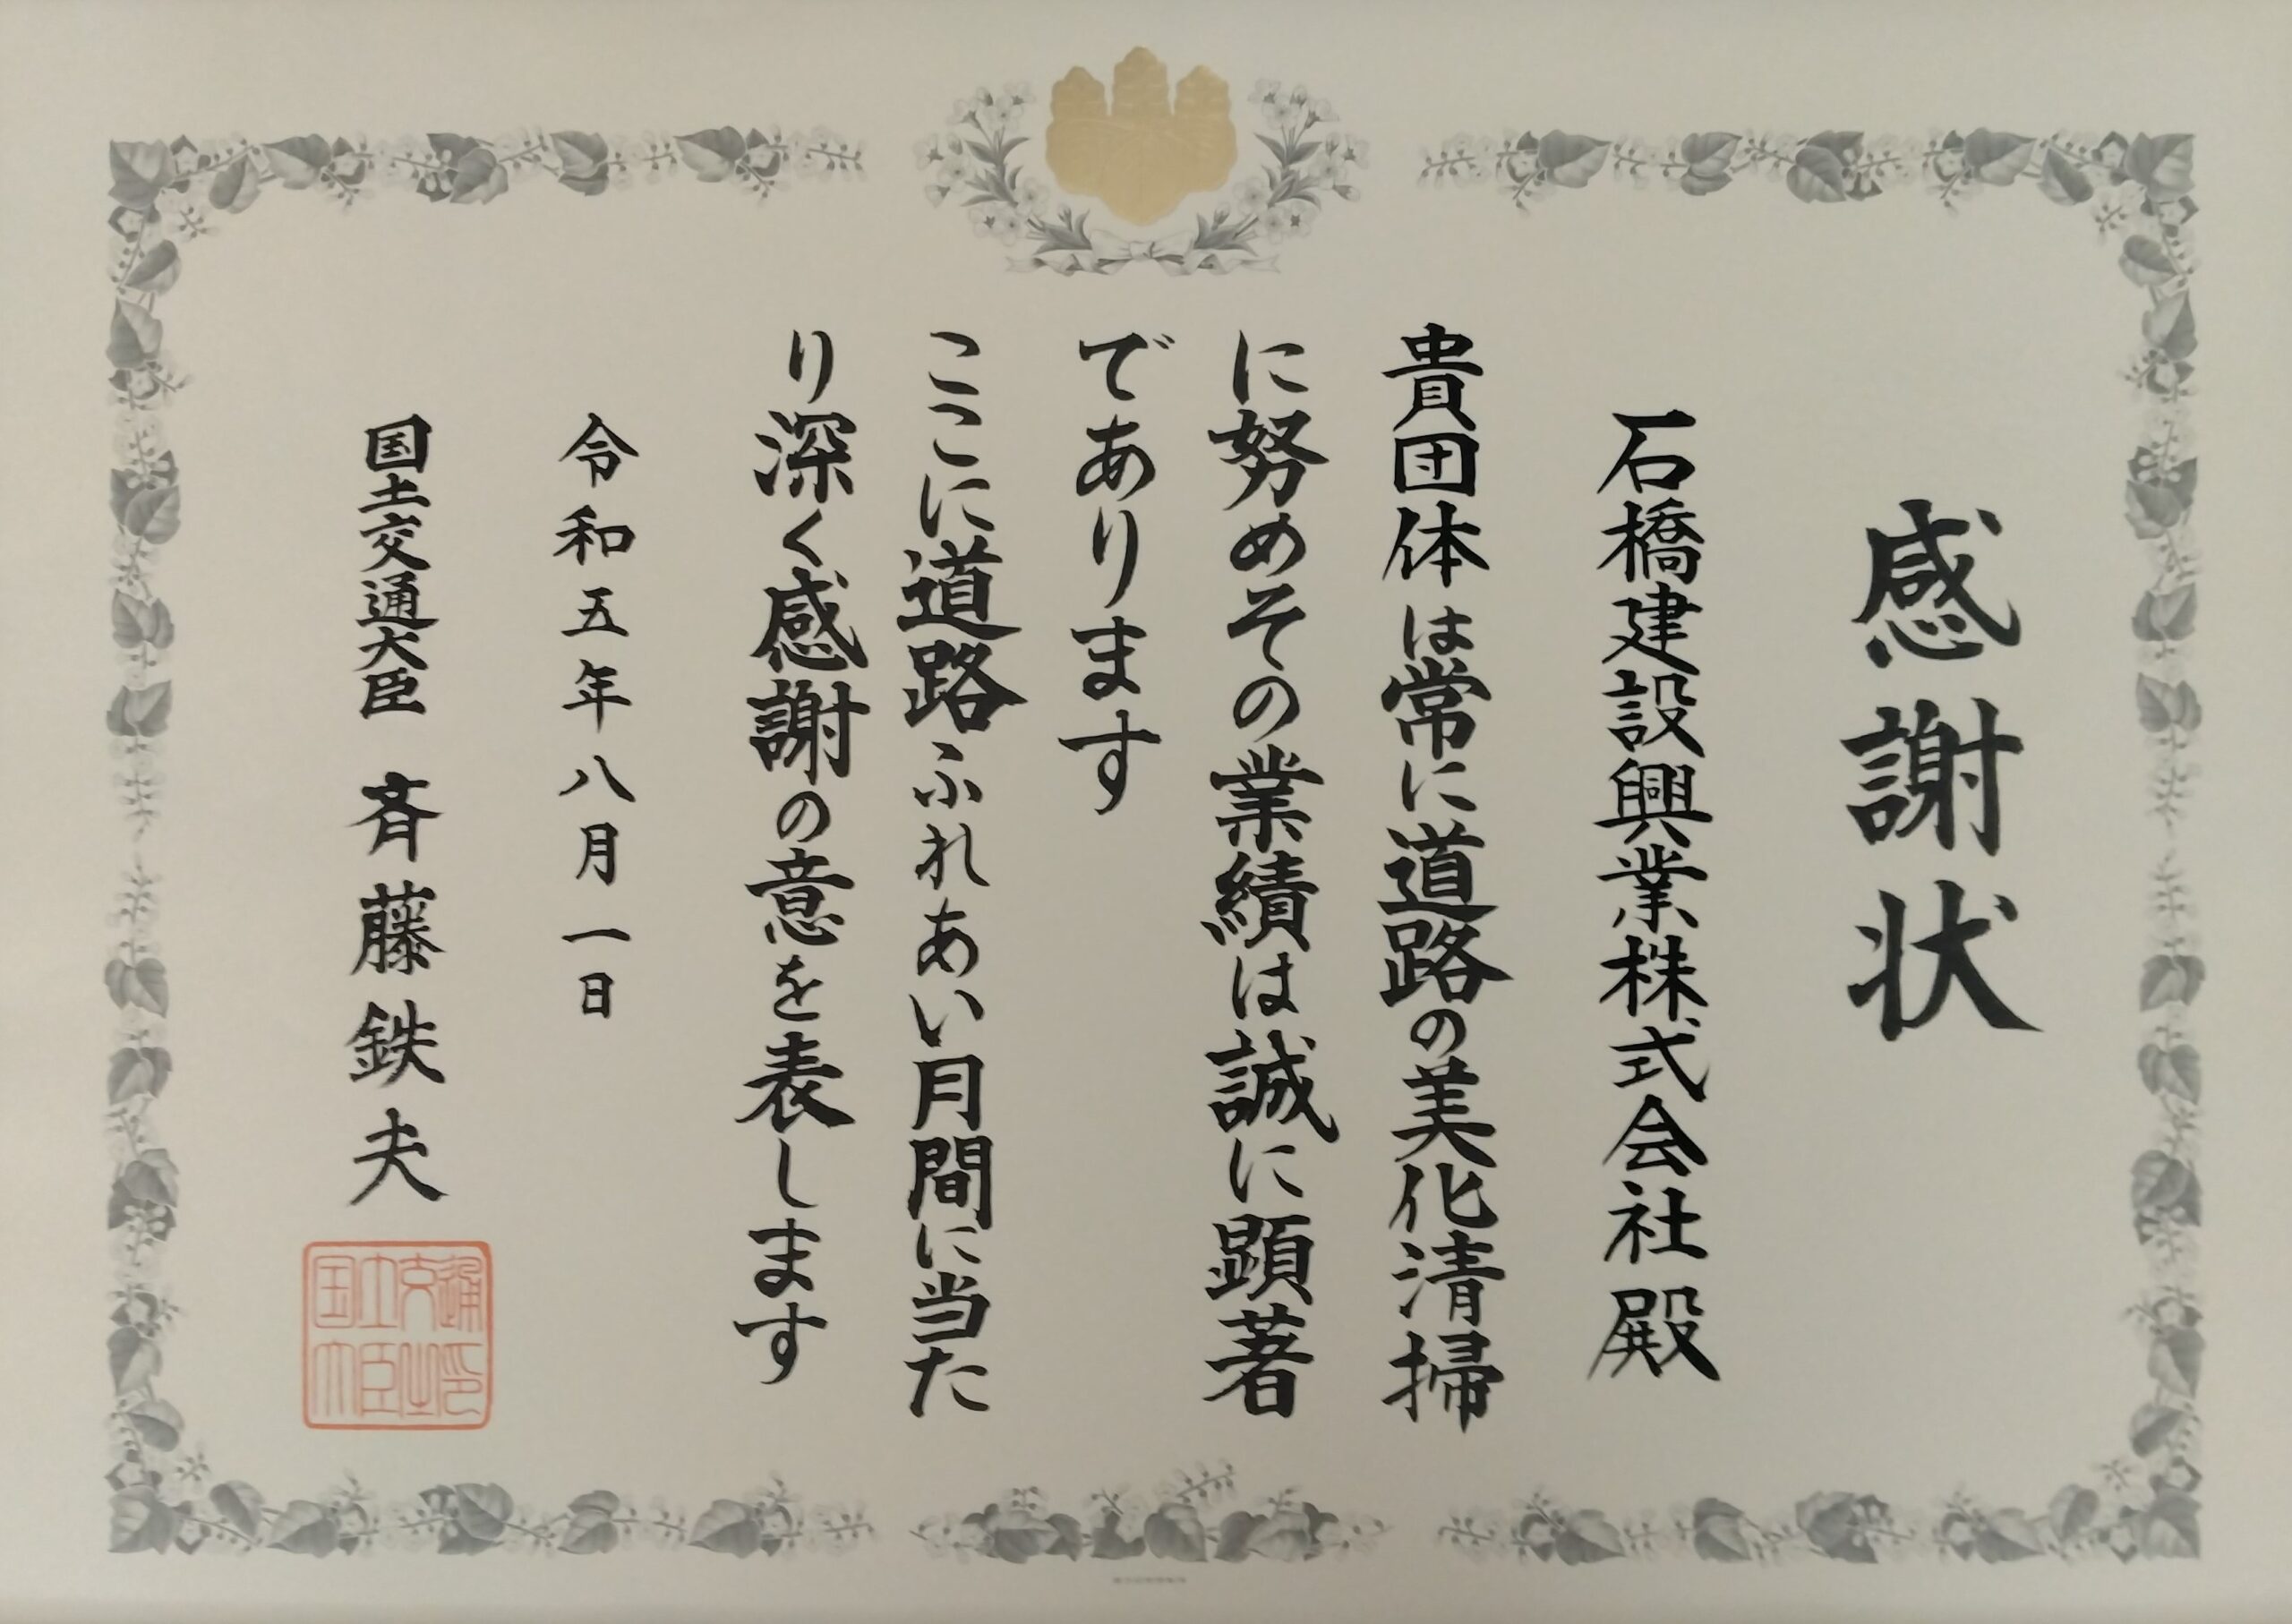 感謝状
石橋建設興業株式会社 殿
貴団体は常に道路の美化清掃
に努めその業績は誠に顕著
であります
ここに道路ふれあい月間に当た
り深く感謝の意を表します
令和五年八月一日
国土交通大臣 斉藤鉄夫